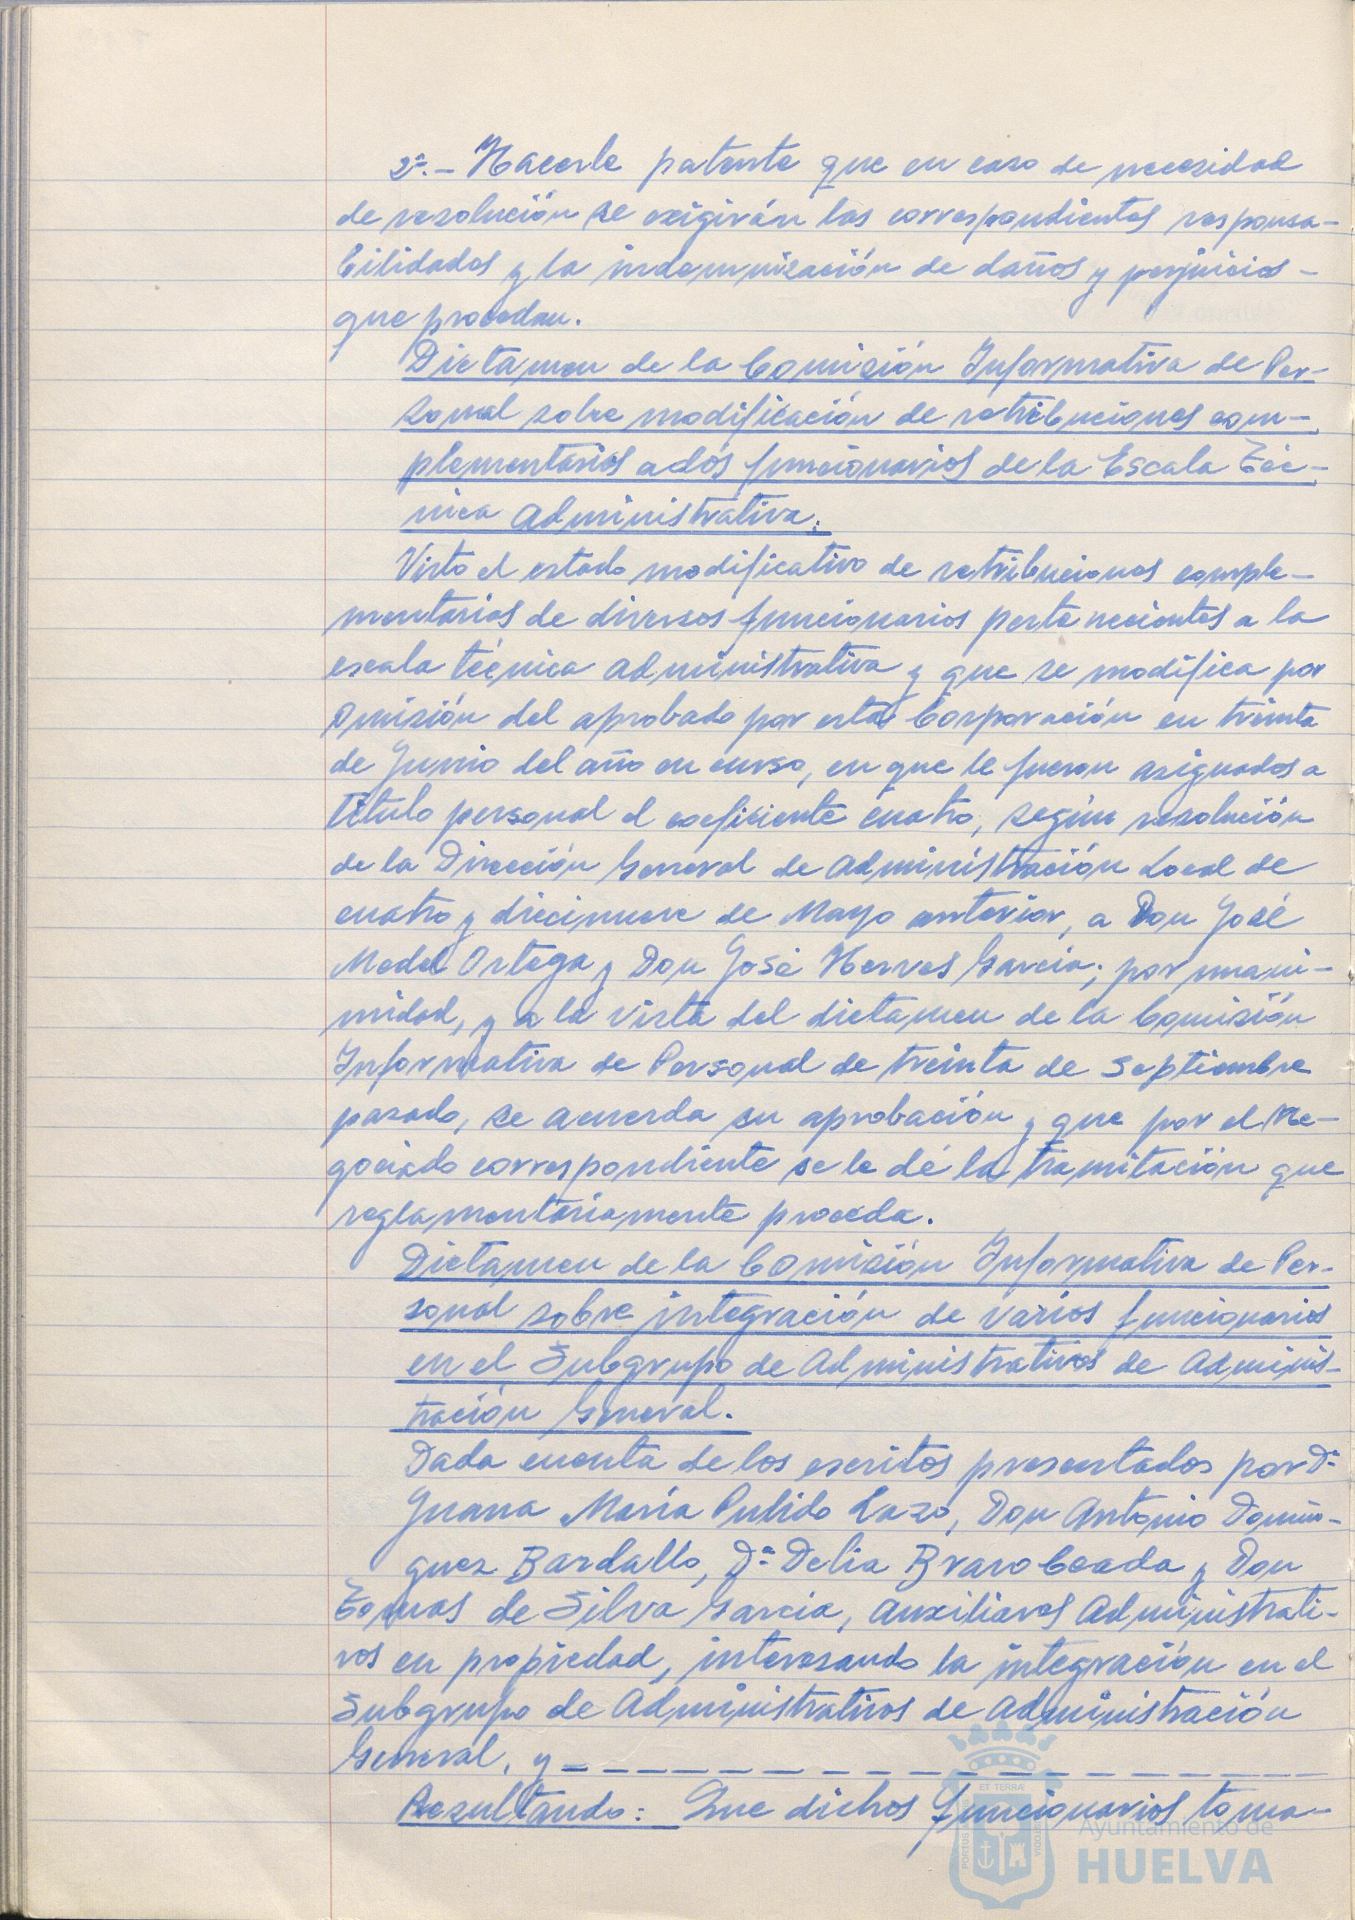 2º.- Hacerle patente que en caso de necesidad
de resolución se exigirán las correspondientes responsa-
bilidades y la indemnización de daños y perjuicios -
que procedan.
Dictamen de la Comisión Informativa de Per-
sonal sobre modificación de retribuciones com-
plementarias a dos funcionarios de la Escala Téc-
nica Administrativa.
Visto el estado modificativo de retribuciones comple-
mentarias de diversos funcionarios pertenecientes a la
escala técnica administrativa y que se modifica por
omisión del aprobado por esta Corporación en treinta
de Junio del año en curso, en que le fueron asignados a
título personal el coeficiente cuatro, según resolución
de la Dirección General de Administración Local de
cuatro y diecinueve de Mayo anterior, a Don José
Medel Ortega y Don José Nerves García; por unani-
midad, y a la vista del dictamen de la Comisión
Informativa de Personal de treinta de Septiembre
pasado, se acuerda su aprobación y que por el Ne-
gociado correspondiente se le dé la tramitación que
reglamentariamente proceda.
Dictamen de la Comisión Informativa de Per-
sonal sobre integración de varios funcionarios
en el Subgrupo de Administrativos de Adminis-
tración General.
Dada cuenta de los escritos presentados por Dª
Juana María Pulido Lazo, Don Antonio Domín-
guez Bardallo, Dª Delia Bravo Ceada y Don
Tomás de Silva García, Auxiliares Administrati-
vos en propiedad, interesando la integración en el
Subgrupo de Administrativos de Administración
General, y - - - - - - - - - - - - - - - - -
Resultando: Que dichos funcionarios toma-
ET TERRÆ
PORTUS
CUSTODIA
Ayuntamiento de
HUELVA